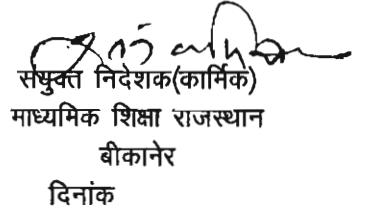 संयुक्त निदेशक(कार्मिक)
माध्यमिक शिक्षा राजस्थान
बीकानेर
दिनांक